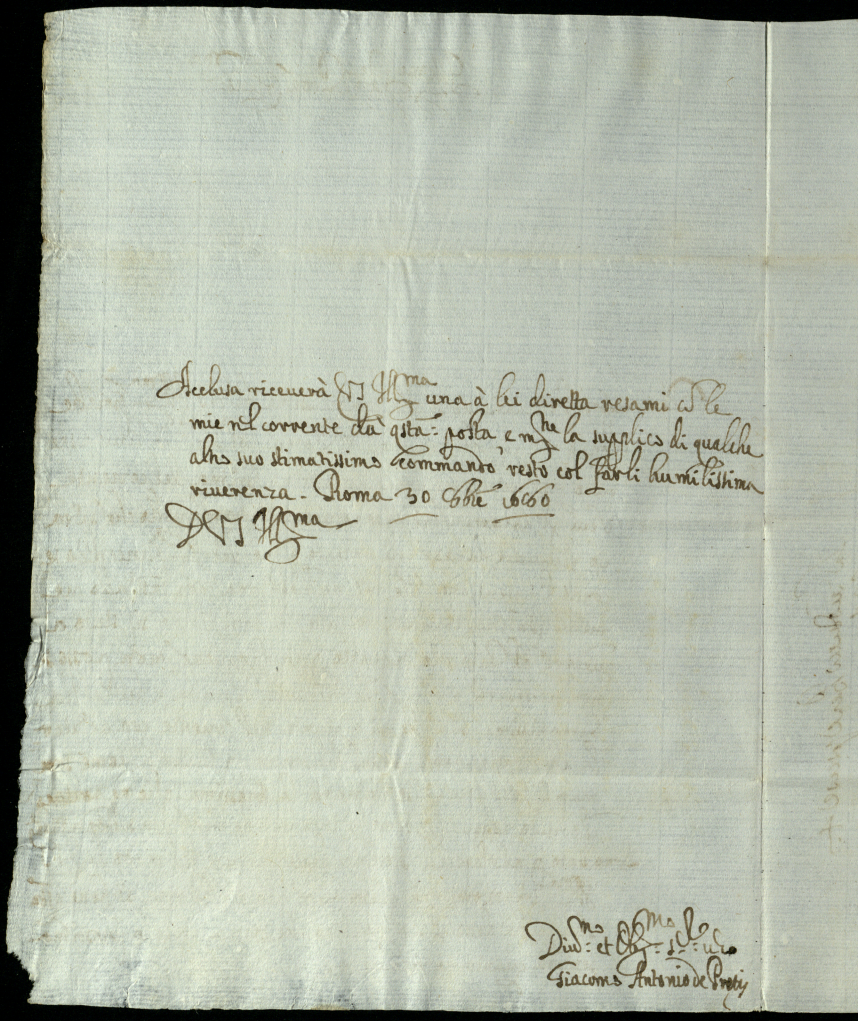 Acclusa riceuerà VS Ill.ma una à lei diretta resami cõ le
mie nel corrente da qsta: posta e la supplico di qualche
altro suo stimatissimo Commando resto col farli humilissima
riuerenza. Roma 30 8bre 1660
D VS Ill.ma
Diu.mo: et Obl.mo
Giacomo Antonio de Pretis